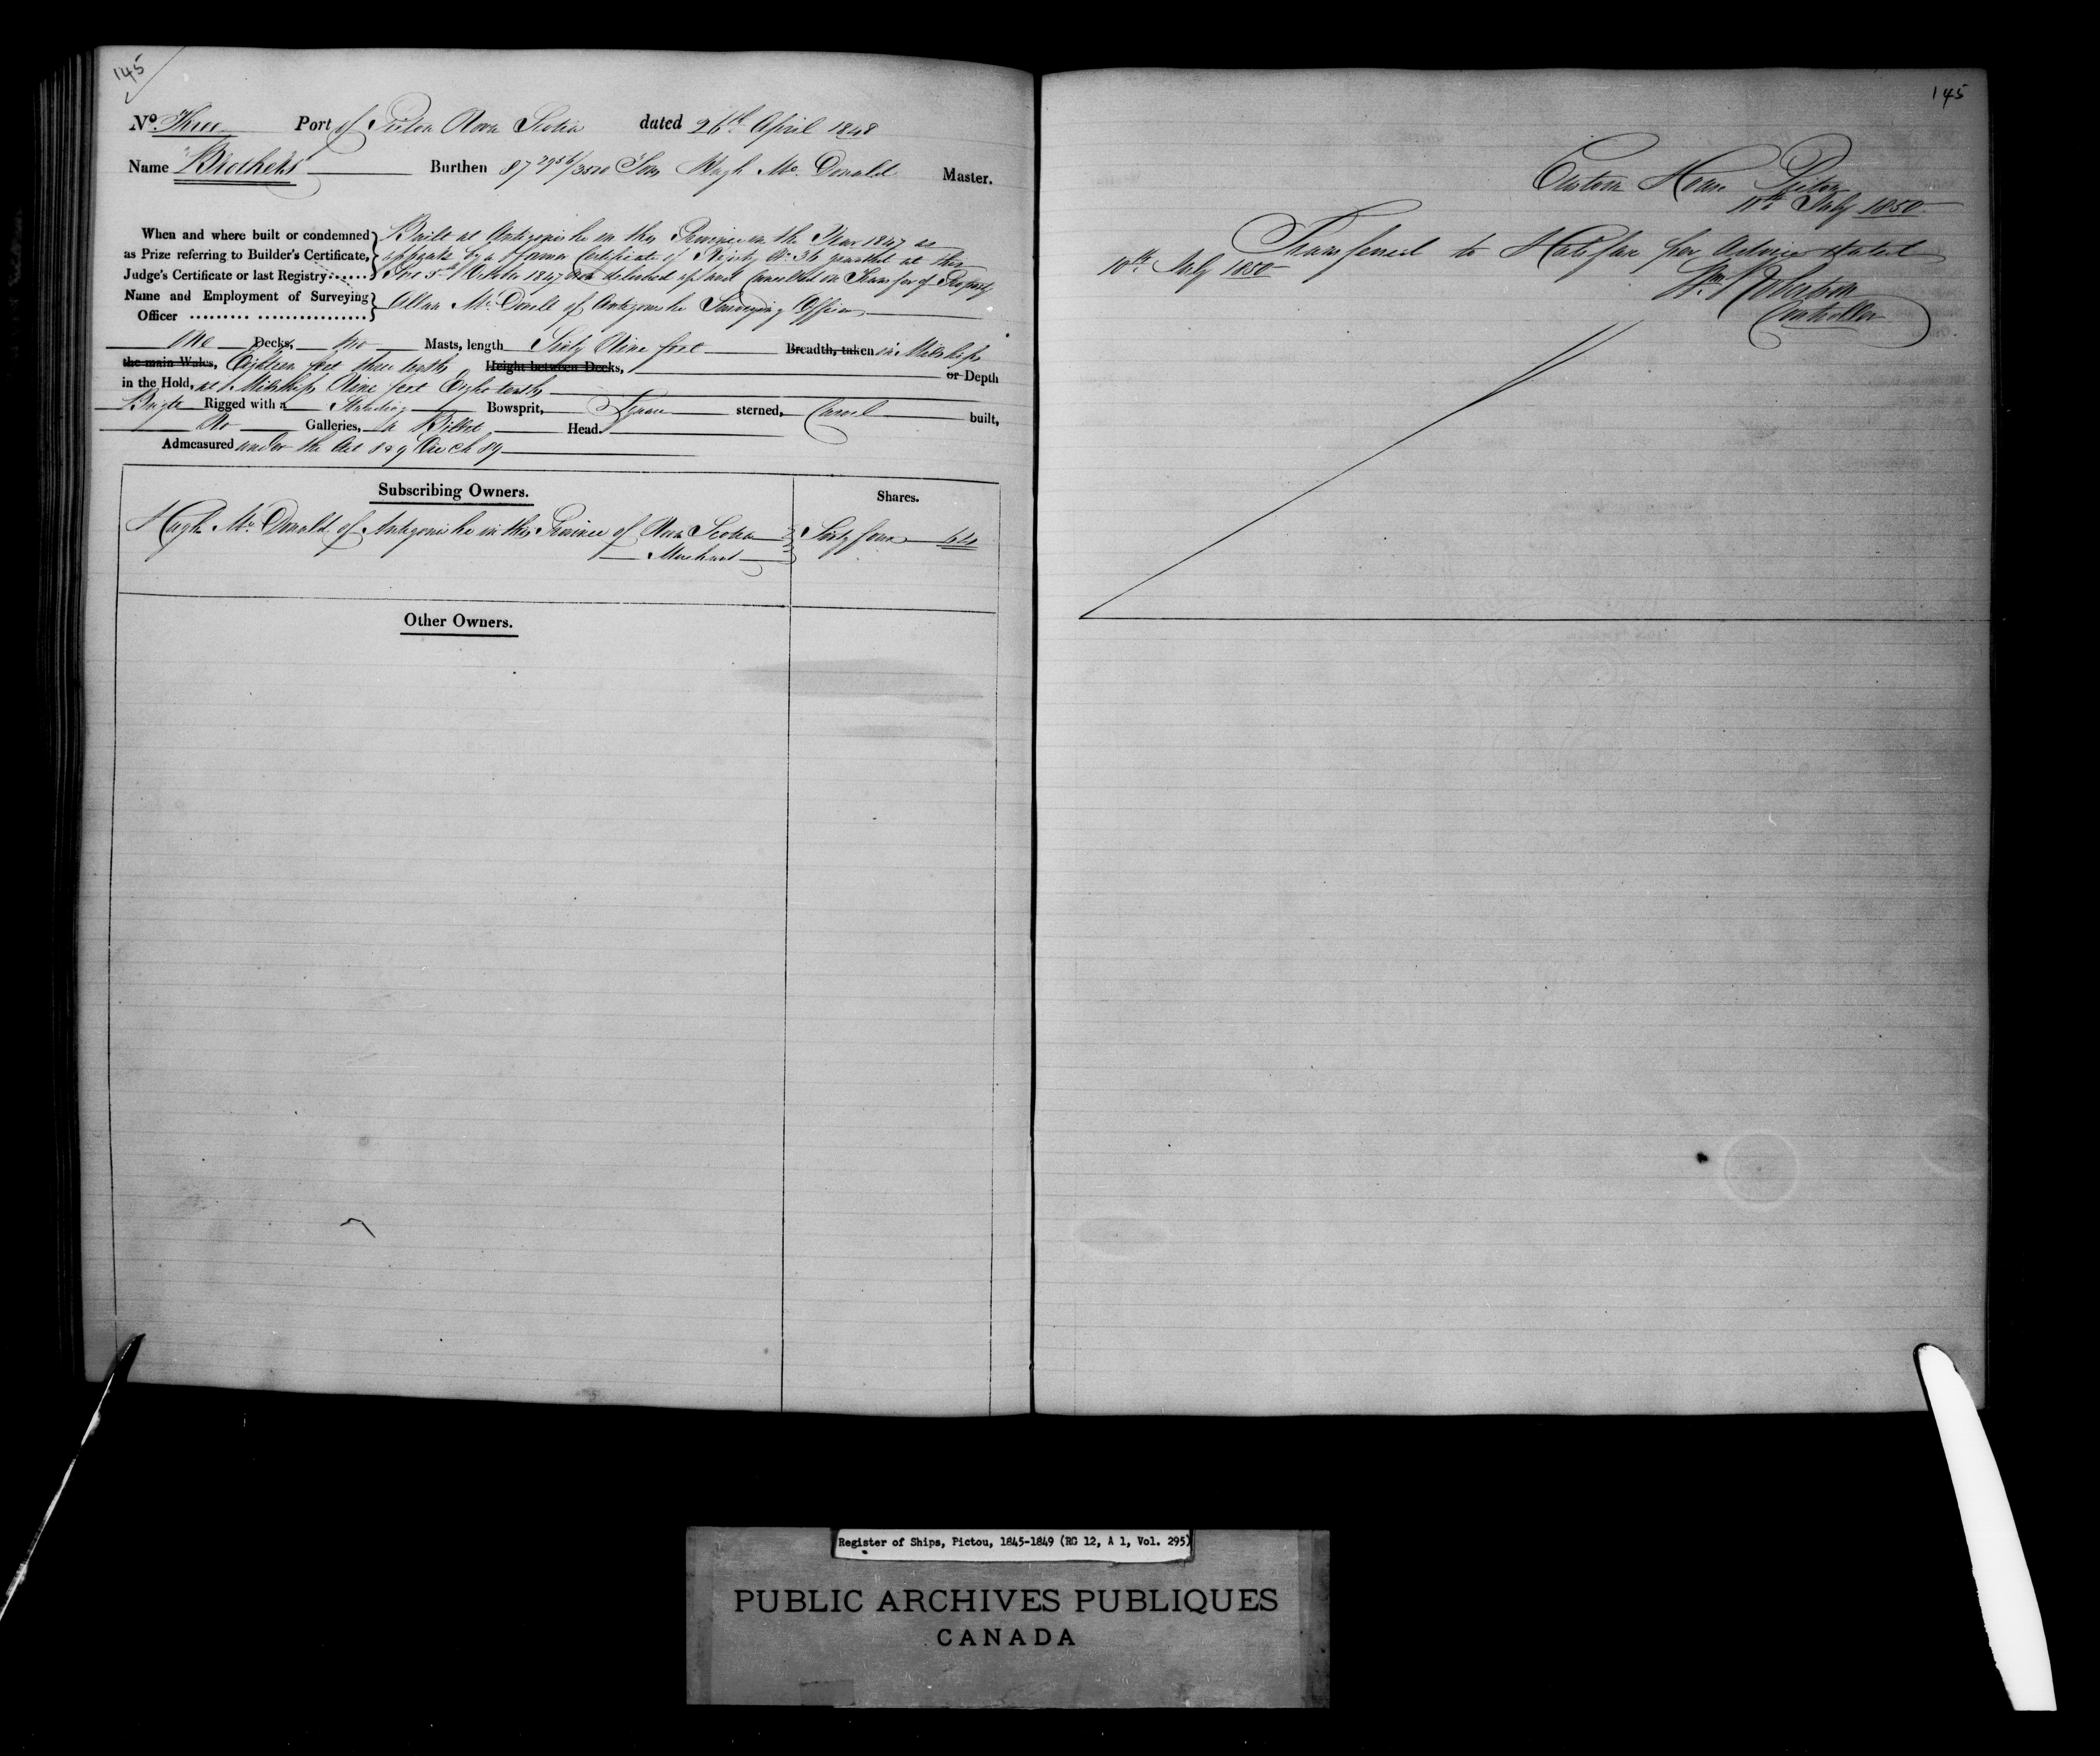 145
No. Three Port of Pictou Nova Scotia dated 26th April 1848
Name "Brothers" Burthen 87 2956/3500 Tons Hugh Mc. Donald Master.
When and where built or condemned as Prize referring to Builder's Certificate, Judge's Certificate or last Registry
Built at Antigonishe in this Province in the Year 1847 as
appears by a former Certificate of Registry No. 36 granted at this
Port 5th October 1847 now delivered up and Cancelled on Transfer of Property
Name and Employment of Surveying Officer
Allan Mc. Donell of Antigonishe Surveying Officer
One Decks, two Masts, length Sixty Nine feet Breadth, taken in Midships
the main Wales, Eighteen feet three tenths Height between Decks, or Depth
in the Hold, at Midships Nine feet Eight tenths
Brigte Rigged with a Standing Bowsprit, Square sterned, Carvel built,
No Galleries, a Billet Head.
Admeasured under the Act 8 & 9 Vic Ch 89
Subscribing Owners. Shares.
Hugh Mc. Donald of Antigonishe in this Province of Nova Scotia Sixty four 64
Merchant
Other Owners.
145
Custom House Pictou
10th July 1850
Transferred to Halifax per advice dated
10th July 1850
Wm. Robertson
Controller
Register of Ships, Pictou, 1845-1849 (RG 12, A 1, Vol. 295)
PUBLIC ARCHIVES PUBLIQUES
CANADA